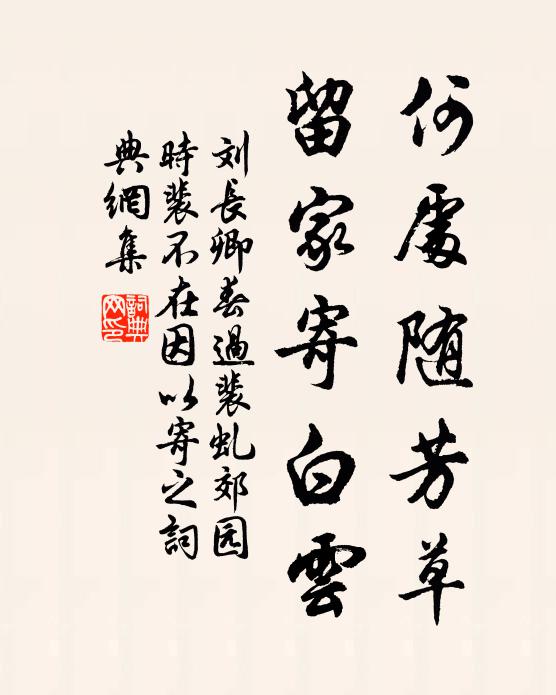 何處随芳草
留家寄白雲
刘長卿春過裴虬郊园
時裴不在因以寄之詞
典網集
詞典網印